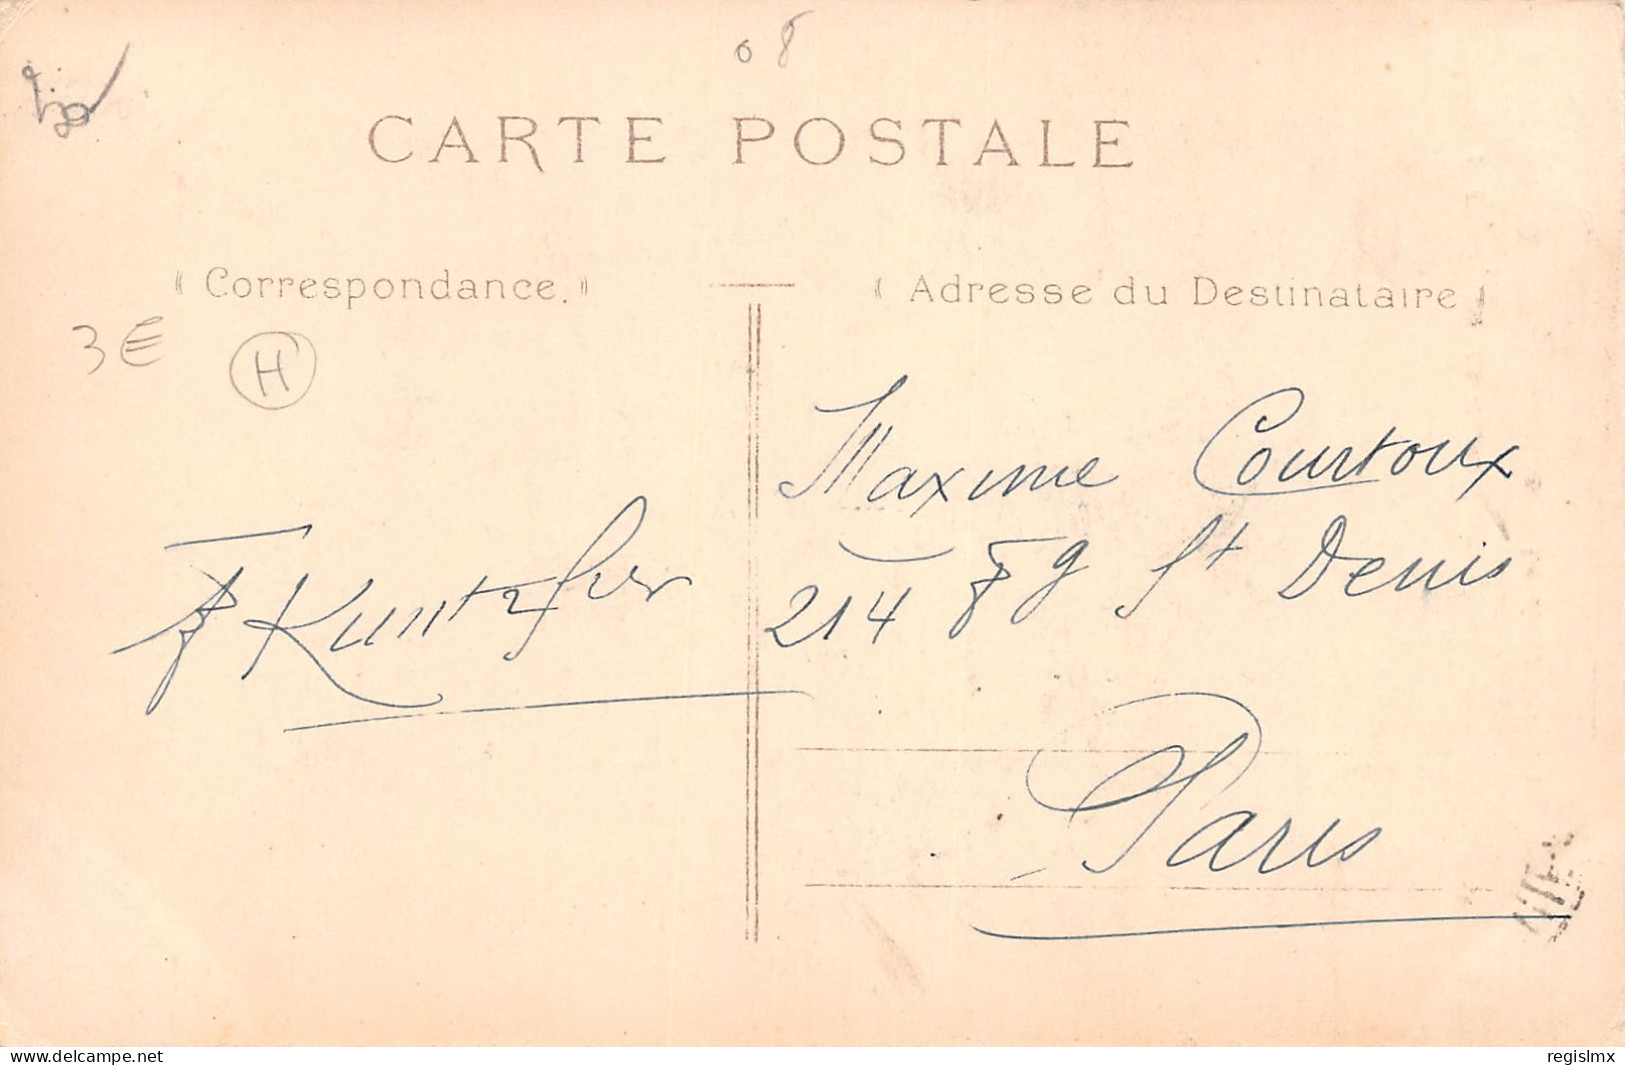 08
CARTE POSTALE
Correspondance.
Adresse du Destinataire
3€
H
Maxime Courtoux
214 Fg St Denis
Paris
www.delcampe.net
regislmx